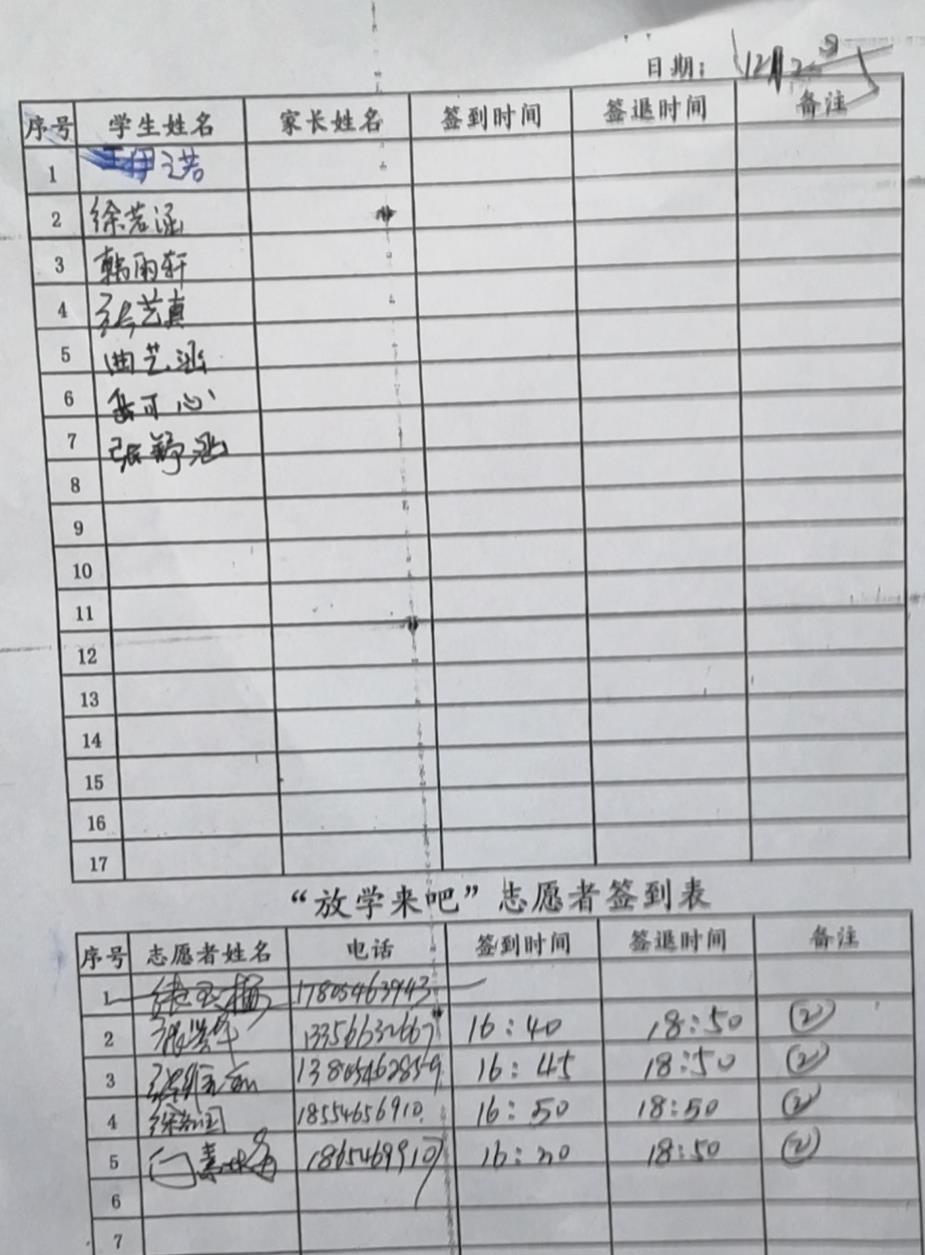 日期：12
序号 学生姓名 家长姓名 签到时间 签退时间 备注
1
2 徐若涵
3 韩雨轩
4 张艺真
5 曲艺涵
6 可心
7 张舒涵
8
9
10
11
12
13
14
15
16
17
“放学来吧”志愿者签到表
序号 志愿者姓名 电话 签到时间 签退时间 备注
1 17805463943
2 13356632667 16:40 18:50 ②
3 13805462859 16:45 18:50 ②
4 18554656910 16:50 18:50 ②
5 18654699107 16:20 18:50 ②
6
7